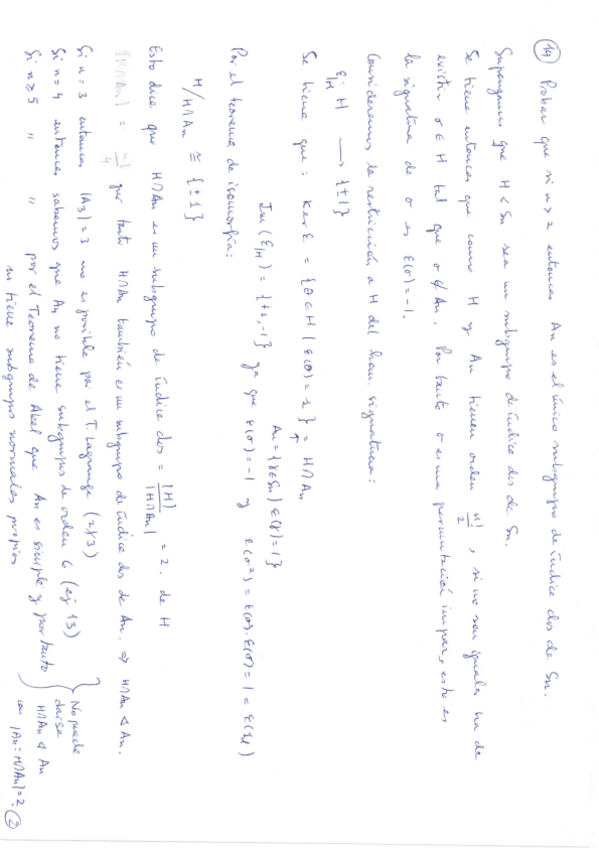 14) Probar que si n>2 entonces An es el único subgrupo de índice dos de Sn.
Supongamos que H < Sn sea un subgrupo de índice dos de Sn.
Se tiene entonces que como H y An tienen orden n!/2, si no son iguales ha de
existir σ ∈ H tal que σ ∉ An. Por tanto σ es una permutación impar, esto es
la signatura de σ es ε(σ)=-1.
Consideremos la restricción a H del hom. signatura:
ε|H H → {±1}
Se tiene que: Ker ε = {σ ∈ H | ε(σ) = 1} = H∩An
An = {γ∈Sn | ε(γ)=1}
Im (ε|H) = {+1, -1} ya que ε(σ) = -1 y ε(σ²) = ε(σ)·ε(σ) = 1 = ε(1d)
Por el teorema de isomorfía:
H/H∩An ≅ {±1}
Esto dice que H∩An es un subgrupo de índice dos = |H|/|H∩An| = 2. de H
|H∩An| = n!/4 por tanto H∩An también es un subgrupo de índice dos de An. ⇒ H∩An ◁ An.
Si n=3 entonces |A3| = 3 no es posible por el T. Lagrange (2∤3)
Si n=4 entonces sabemos que A4 no tiene subgrupos de orden 6 (ej 13)
Si n≥5 " " por el Teorema de Abel que An es simple y por tanto
no tiene subgrupos normales propios
No puede
darse
H∩An ◁ An
con |An : H∩An| = 2.
2